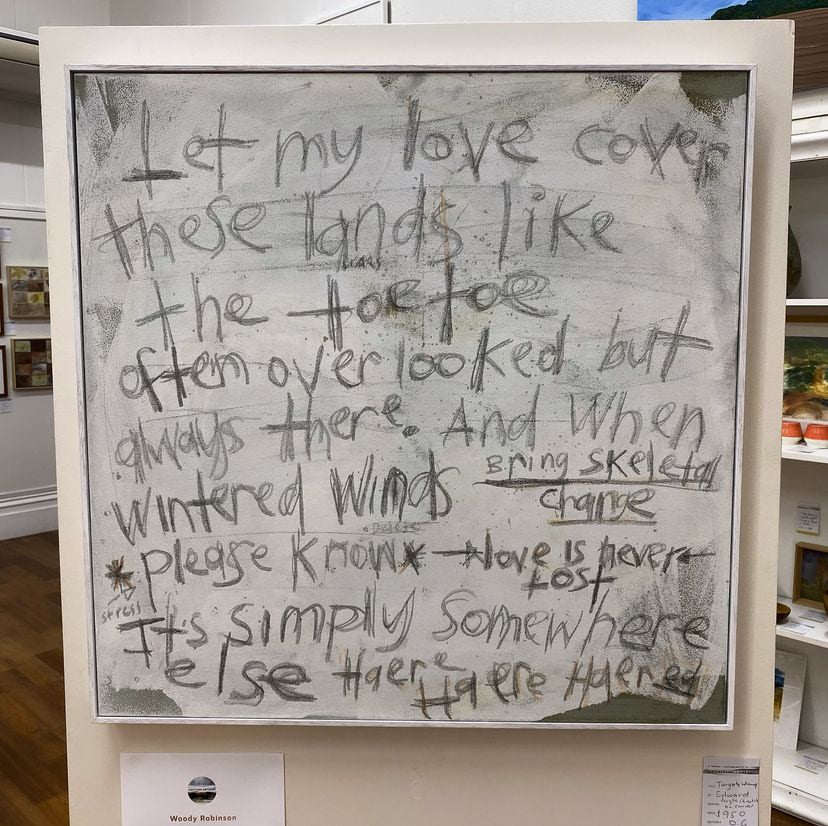 Let my love cover
these lands like
the toetoe
often overlooked but
always there. And when
wintered winds Bring skeletal
change
* please know* love is never
lost
stress
It's simply somewhere
else Haere Haere Haere
Woody Robinson